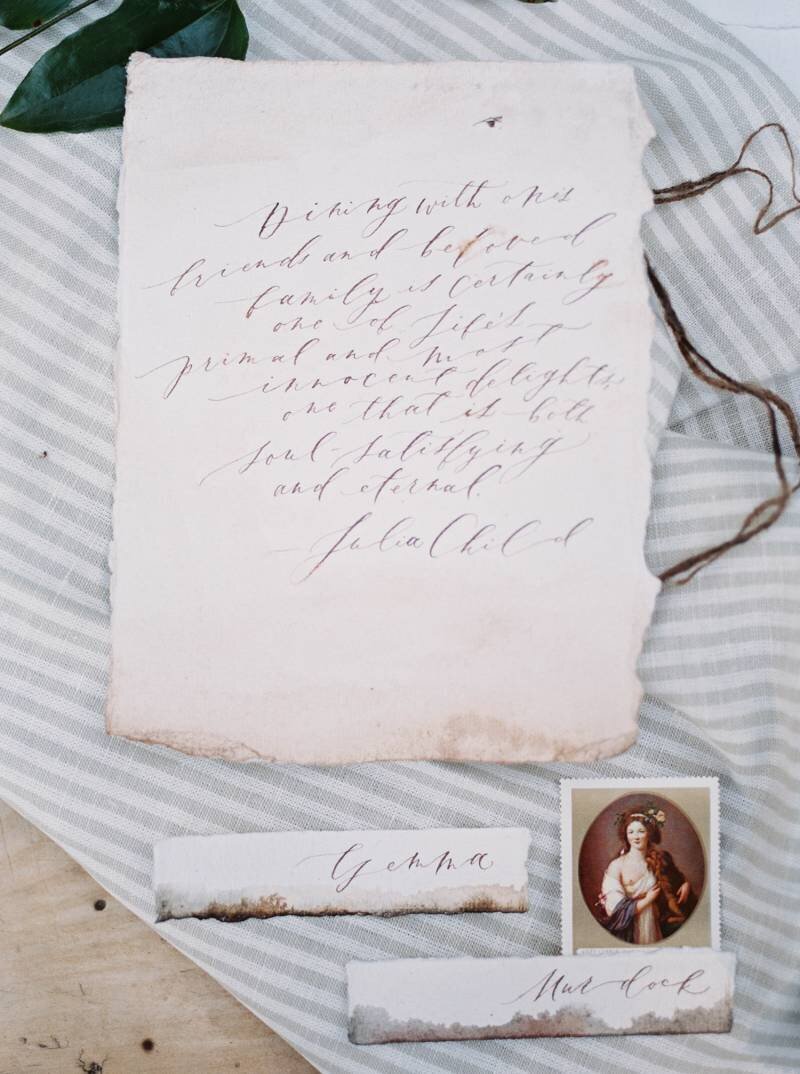 Dining with one's
friends and beloved
family is certainly
one of life's
primal and most
innocent delights,
one that is both
soul-satisfying
and eternal.
— Julia Child
Gemma
Murdock